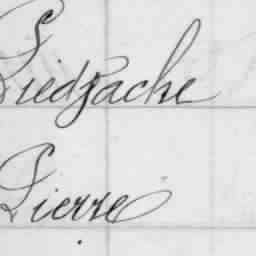 Piedzache
Pierre